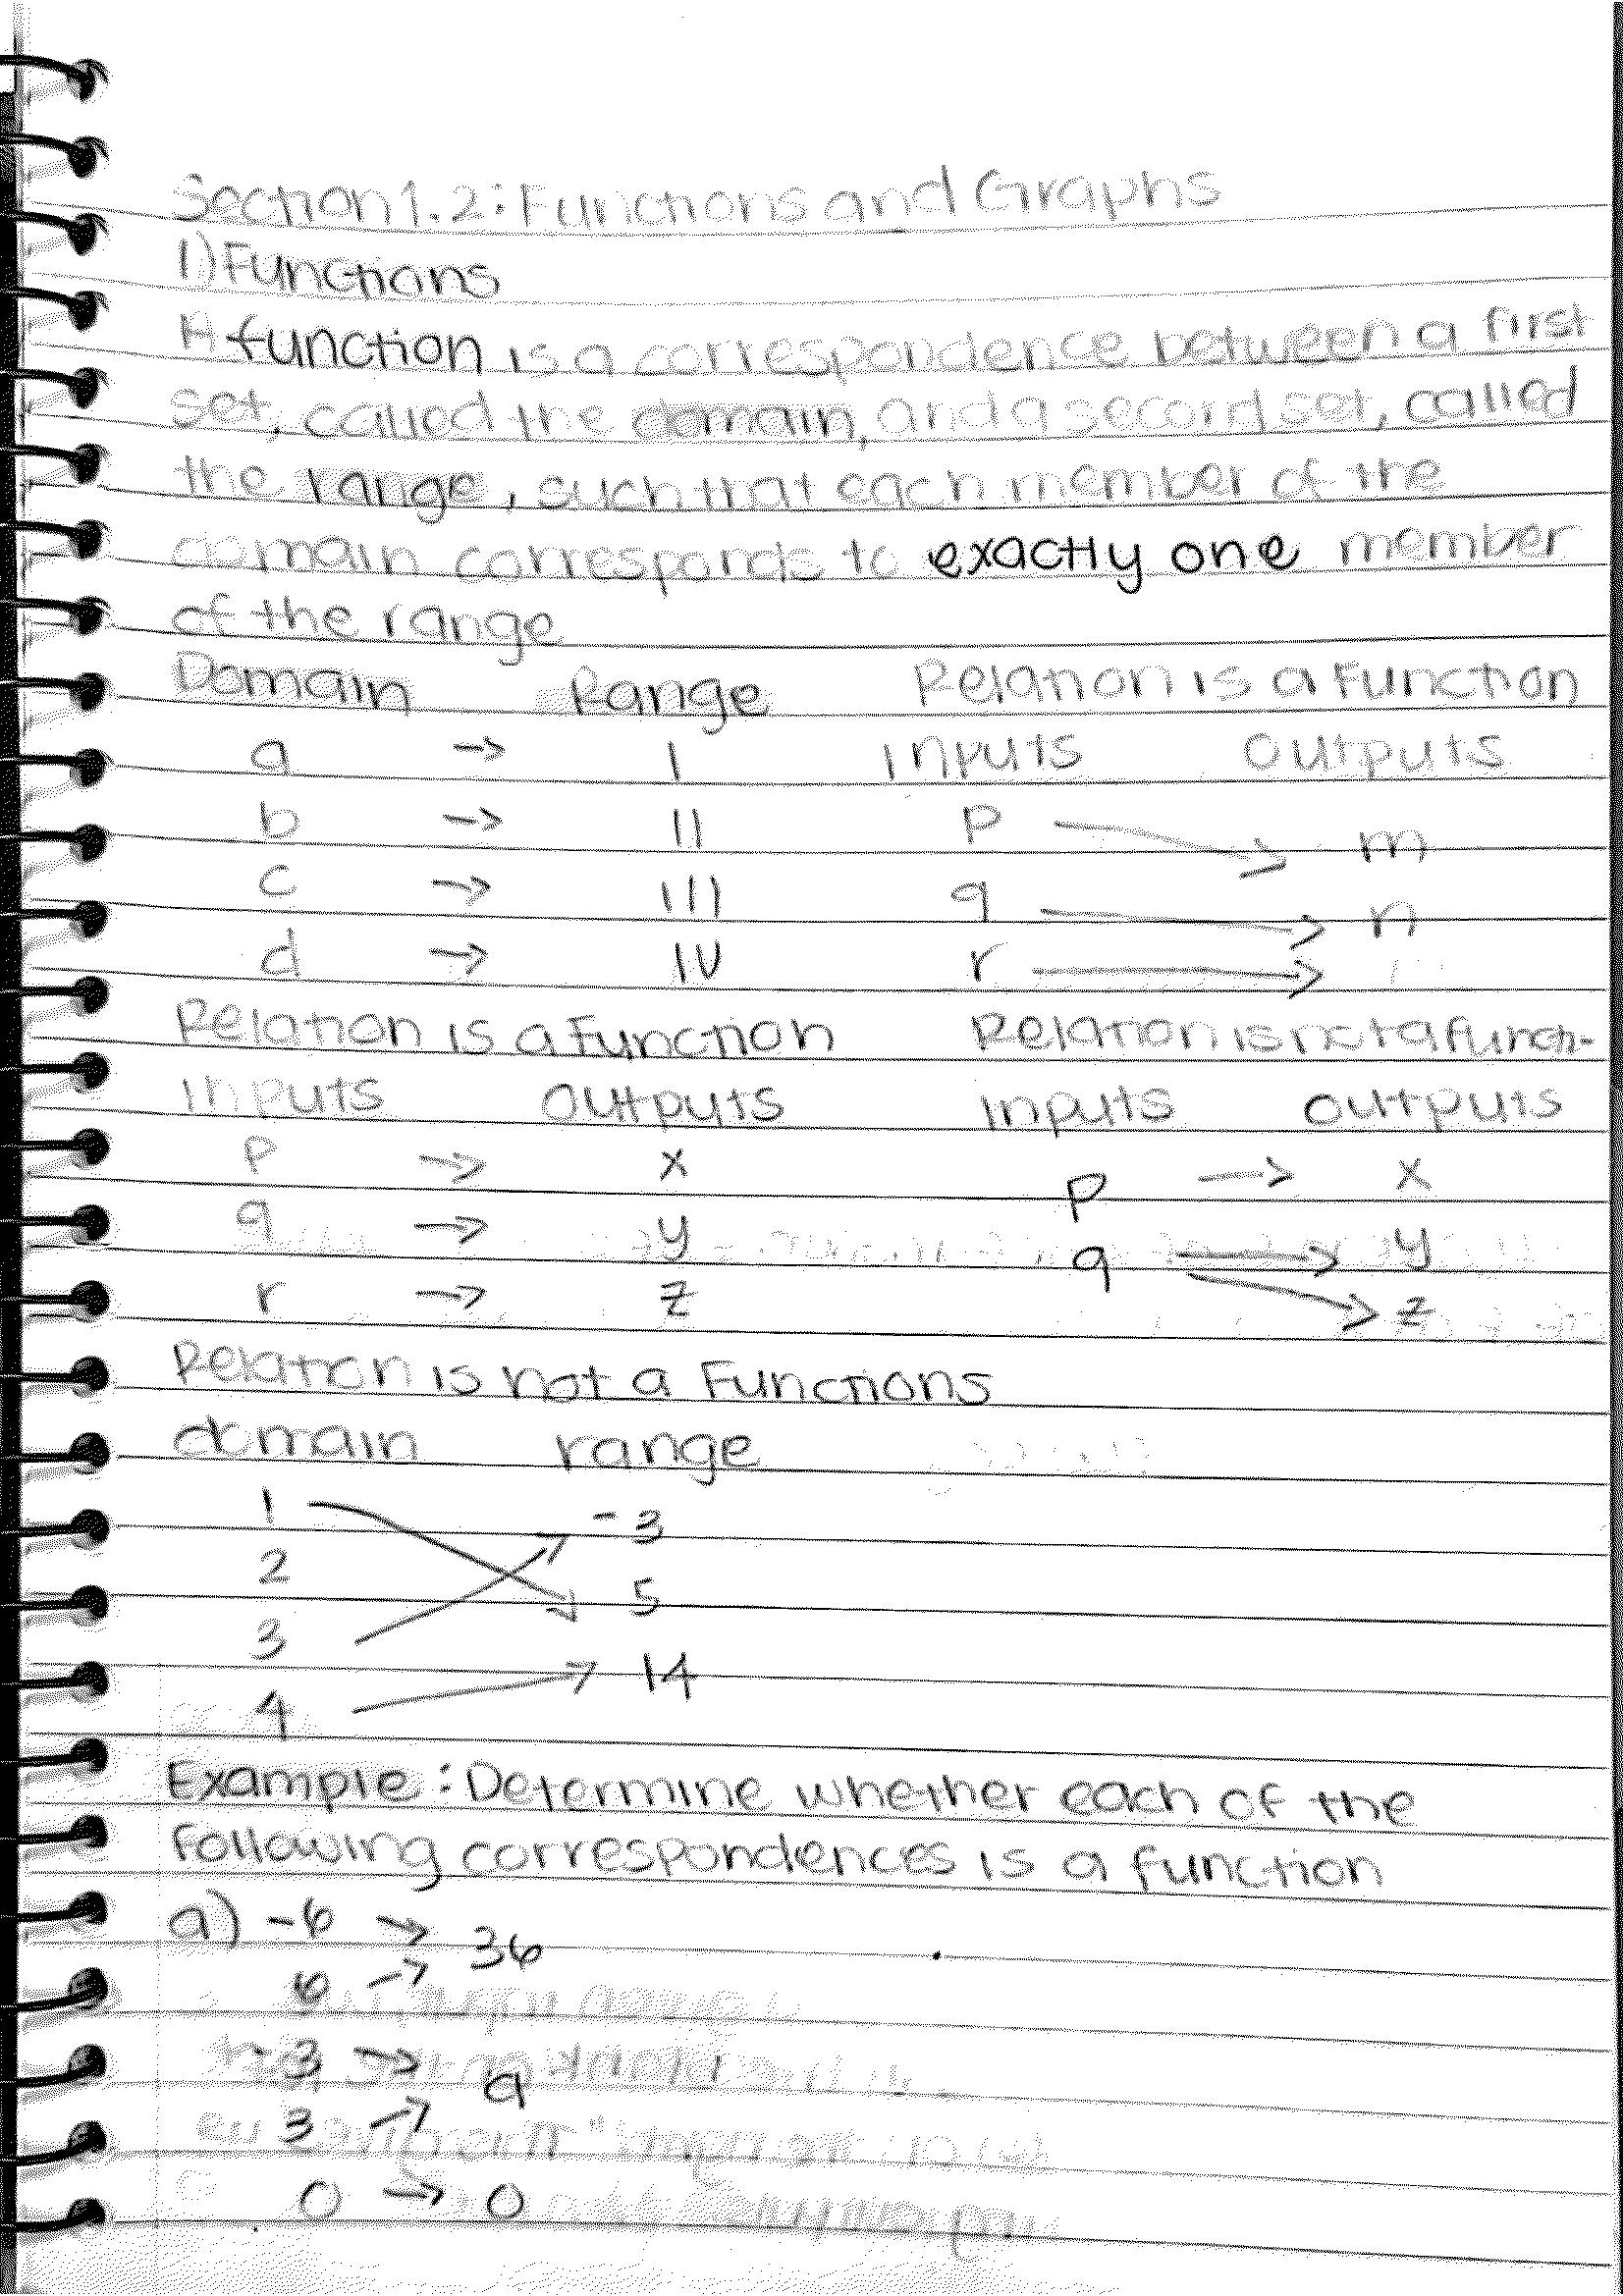 Section 1.2: Functions and Graphs
1) Functions
A function is a correspondence between a first
set, called the domain, and a second set, called
the range, such that each member of the
domain corresponds to exactly one member
of the range
Domain Range Relation is a Function
a → I Inputs Outputs
b → II p → m
c → III q → n
d → IV r →
Relation is a Function Relation is not a functi-
Inputs Outputs Inputs Outputs
p → x p → x
q → y q → y
r → z → z
Relation is not a Functions
domain range
1 -3
2 5
3 14
4
Example: Determine whether each of the
following correspondences is a function
a) -6 → 36
6 →
-3 → 9
3 →
0 → 0